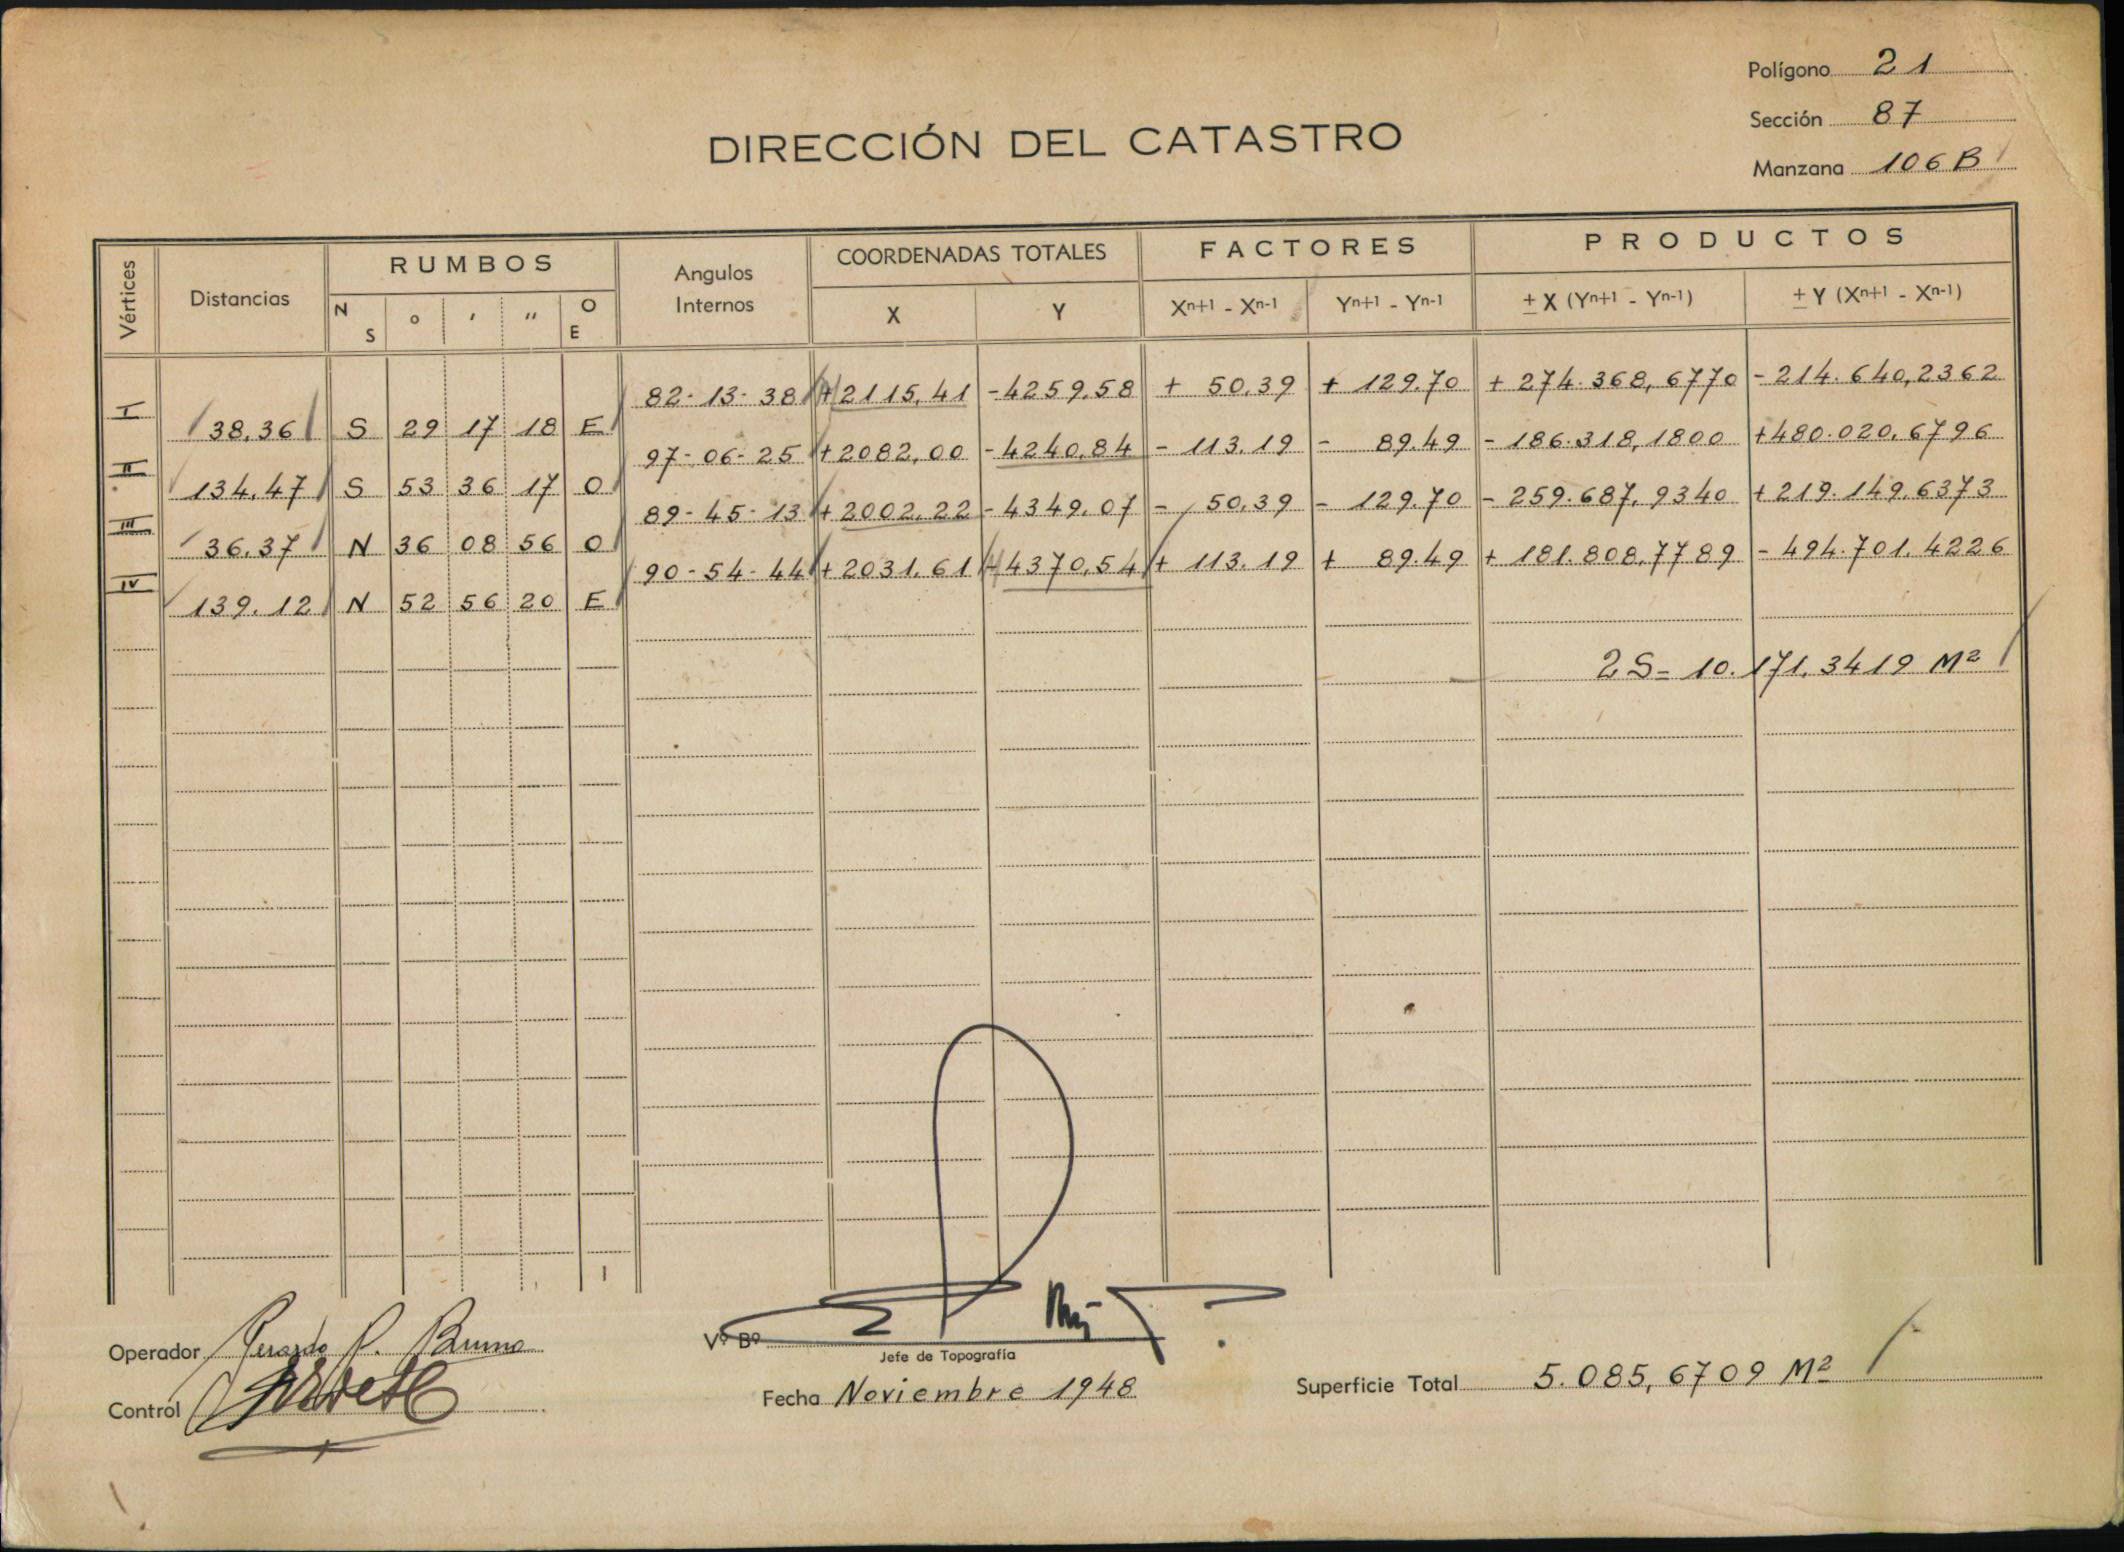 Polígono 21
Sección 87
Manzana 106 B
DIRECCIÓN DEL CATASTRO
Vértices
Distancias
RUMBOS
N S ° ' " O E
Angulos Internos
COORDENADAS TOTALES
X Y
FACTORES
Xn+1 - Xn-1 Yn+1 - Yn-1
PRODUCTOS
± X (Yn+1 - Yn-1) ± Y (Xn+1 - Xn-1)
82-13-38 +2115,41 -4259,58 + 50,39 + 129,70 + 274.368,6770 - 214.640,2362
I 38,36 S 29 17 18 E
97-06-25 +2082,00 -4240,84 - 113,19 - 89,49 - 186.318,1800 +480.020,6796
II 134,47 S 53 36 17 O
89-45-13 +2002,22 -4349,07 - 50,39 - 129,70 - 259.687,9340 +219.149,6373
III 36,37 N 36 08 56 O
90-54-44 +2031,61 -4370,54 + 113,19 + 89,49 + 181.808,7789 - 494.701,4226
IV 139,12 N 52 56 20 E
2S= 10.171,3419 M²
Operador Gerardo P. Bruno
Control
Vº Bº
Jefe de Topografía
Fecha Noviembre 1948
Superficie Total 5.085,6709 M²